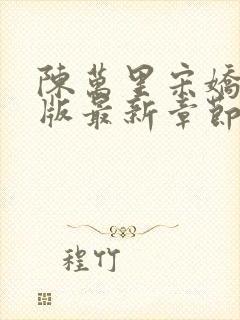 陳萬里宋嬌
版最新章節
程竹